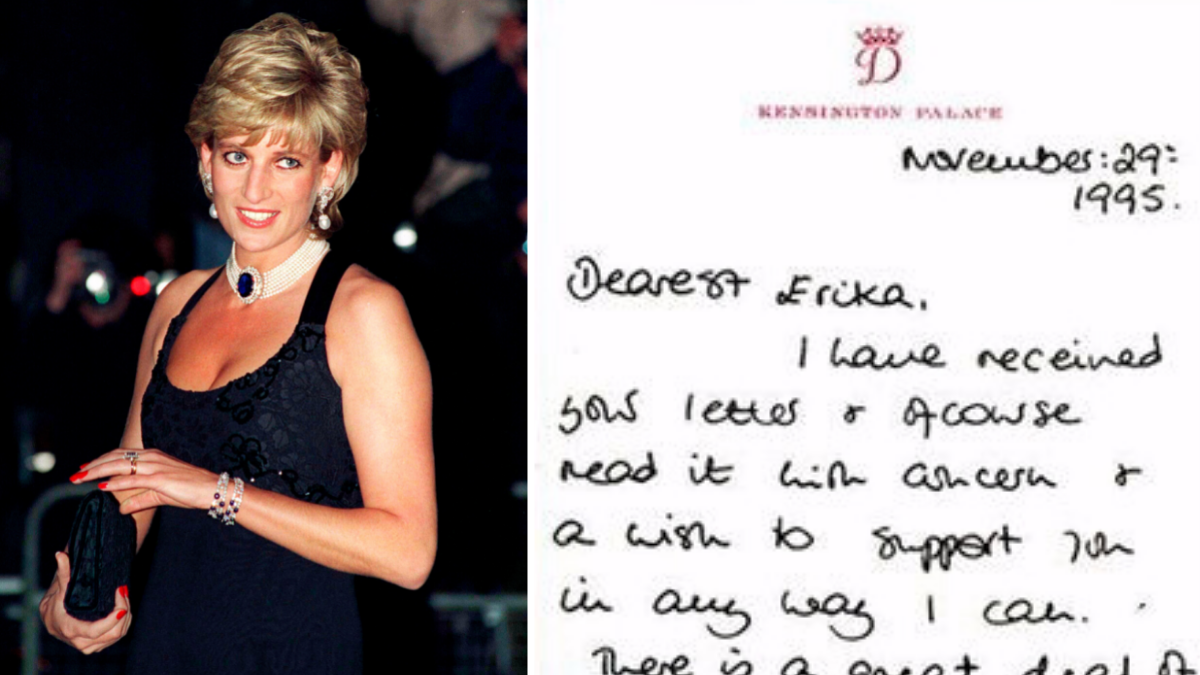 D
KENSINGTON PALACE
November: 29:
1995.
Dearest Erika,
I have received
your letter & ofcourse
read it with concern &
a wish to support you
in any way I can.
There is a great deal of